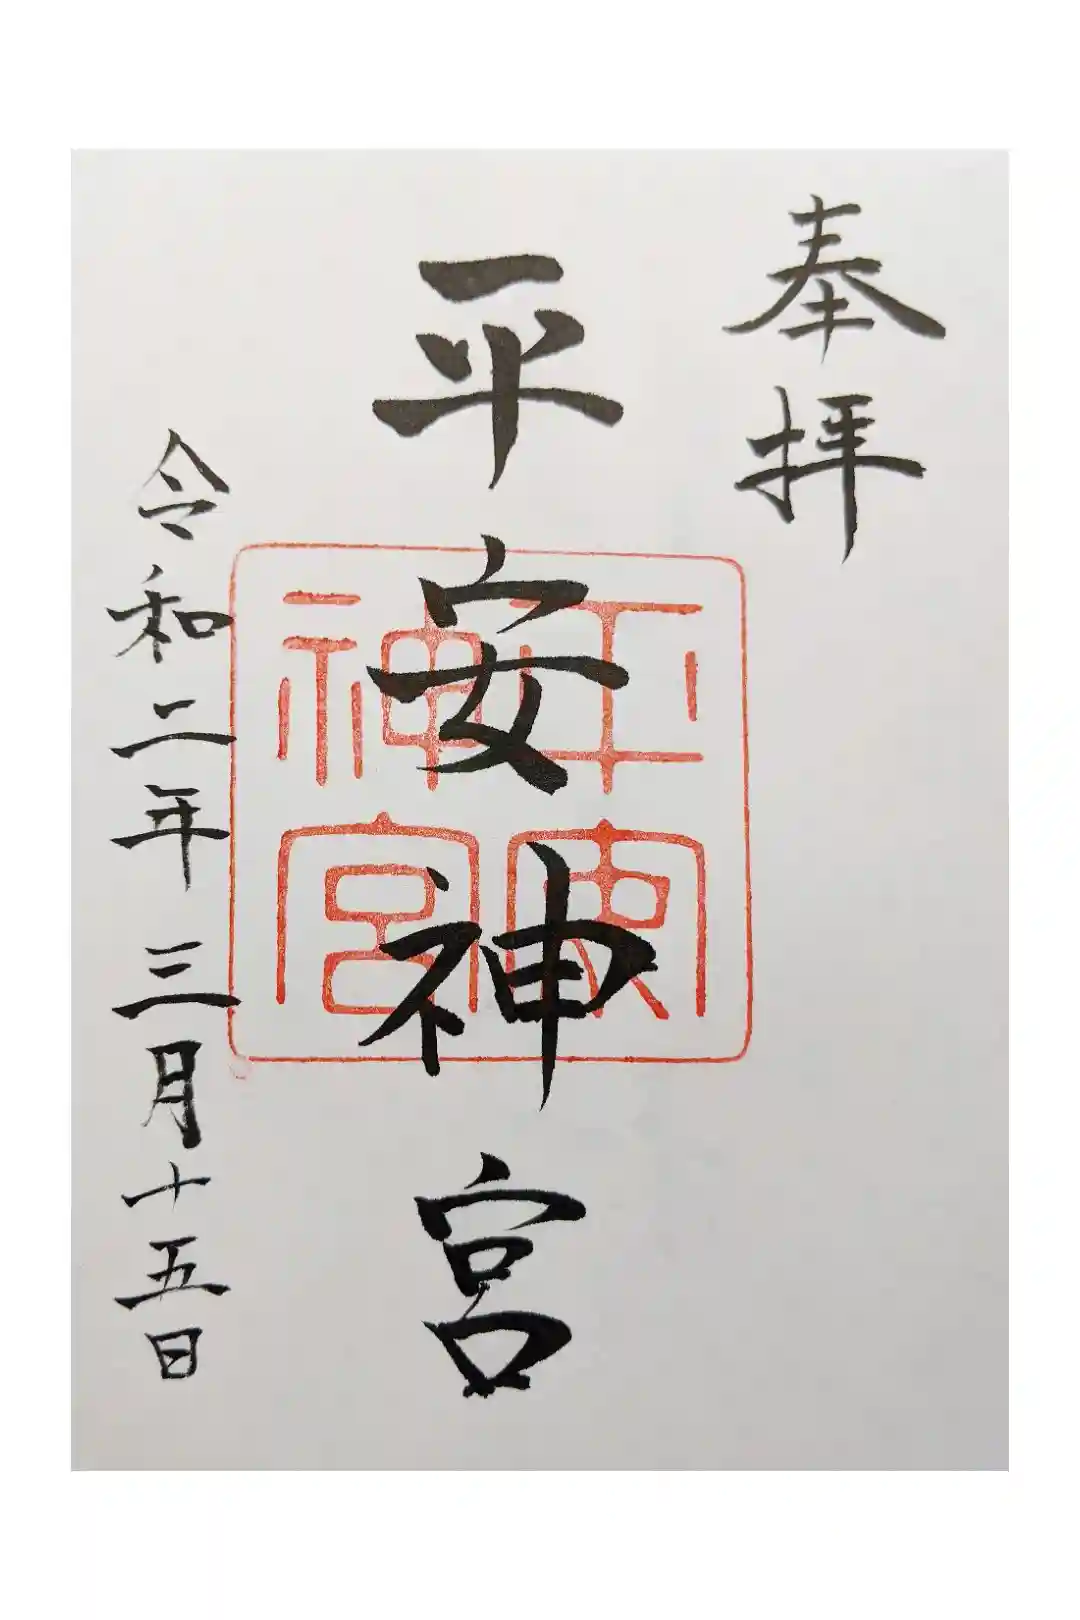 奉拝
平安神宮
令和二年三月十五日
平安神宮